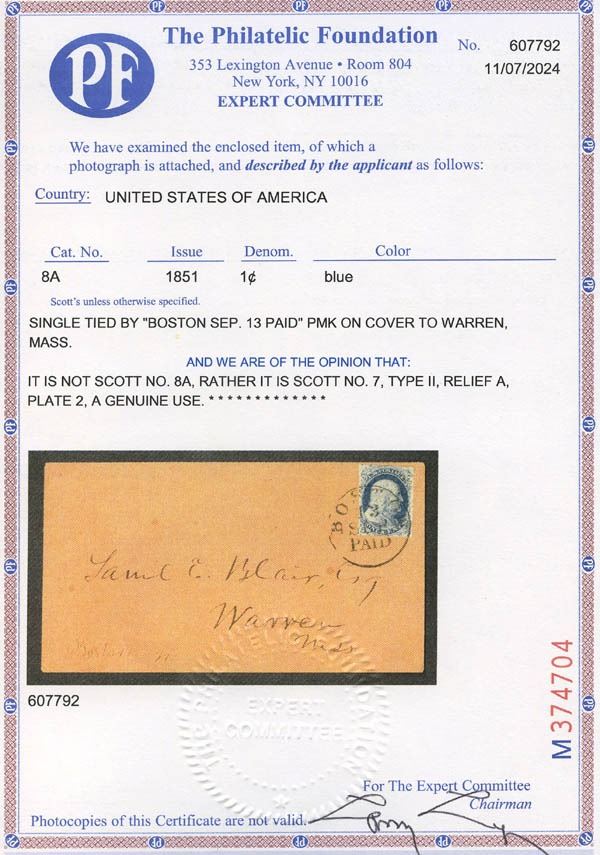 PF
The Philatelic Foundation
353 Lexington Avenue • Room 804
New York, NY 10016
EXPERT COMMITTEE
No. 607792
11/07/2024
We have examined the enclosed item, of which a
photograph is attached, and described by the applicant as follows:
Country: UNITED STATES OF AMERICA
Cat. No. Issue Denom. Color
8A 1851 1¢ blue
Scott's unless otherwise specified.
SINGLE TIED BY "BOSTON SEP. 13 PAID" PMK ON COVER TO WARREN,
MASS.
AND WE ARE OF THE OPINION THAT:
IT IS NOT SCOTT NO. 8A, RATHER IT IS SCOTT NO. 7, TYPE II, RELIEF A,
PLATE 2, A GENUINE USE. * * * * * * * * * * * * *
PAID
Saml E. Blair, Esq
Warren
Mass
607792
THE PHILATELIC FOUNDATION
EXPERT
COMMITTEE
M374704
For The Expert Committee
Chairman
Photocopies of this Certificate are not valid.